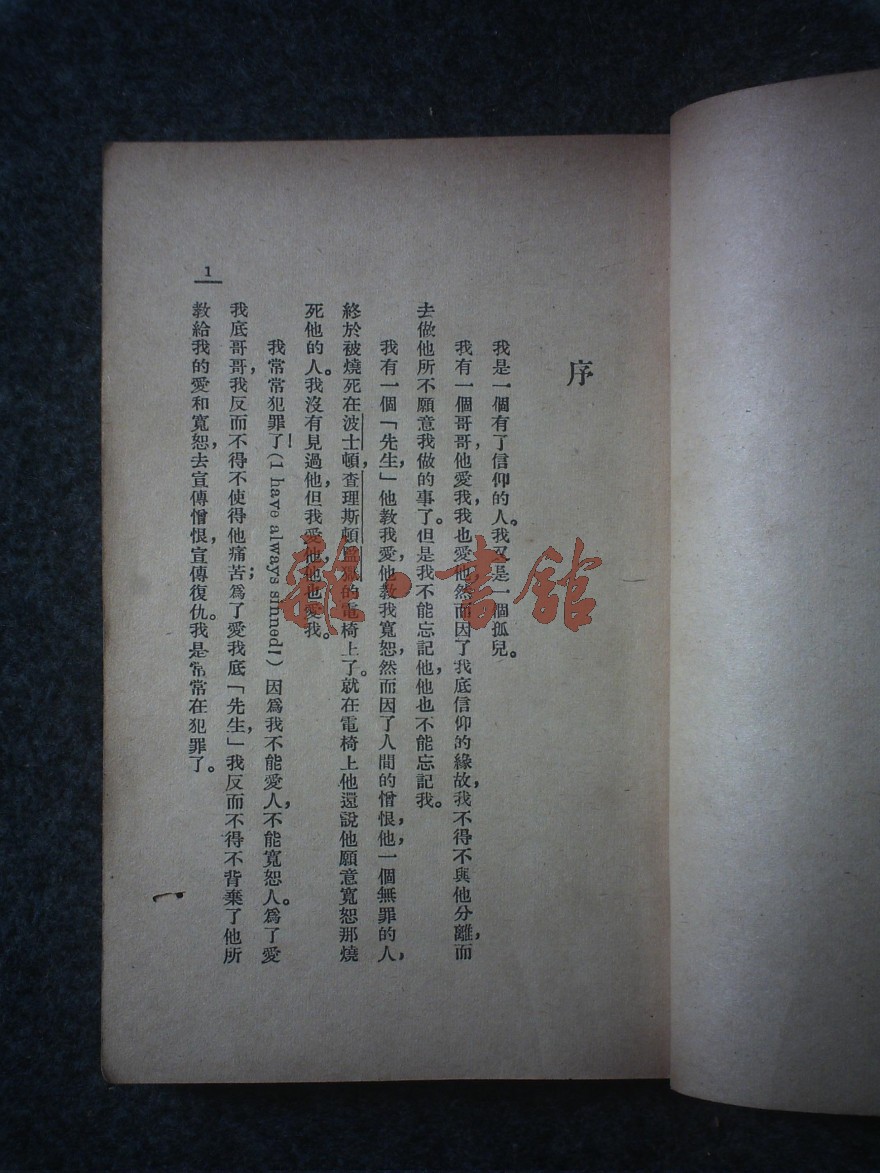 序
我是一個有了信仰的人。我又是一個孤兒。
我有一個哥哥，他愛我，我也愛他，然而因了我底信仰的緣故，我不得不與他分離，而
去做他所不願意我做的事了。但是我不能忘記他，他也不能忘記我。
我有一個「先生，」他教我愛，他教我寬恕，然而因了人間的憎恨，他，一個無罪的人，
終於被燒死在波士頓，查理斯頓監獄的電椅上了。就在電椅上他還說他願意寬恕那燒
死他的人。我沒有見過他，但我愛他，他也愛我。
我常常犯罪了！(I have always sinned!) 因爲我不能愛人，不能寬恕人。爲了愛
我底哥哥，我反而不得不使得他痛苦；爲了愛我底「先生，」我反而不得不背棄了他所
教給我的愛和寬恕，去宣傳憎恨，宣傳復仇。我是常常在犯罪了。
1
龍·書館